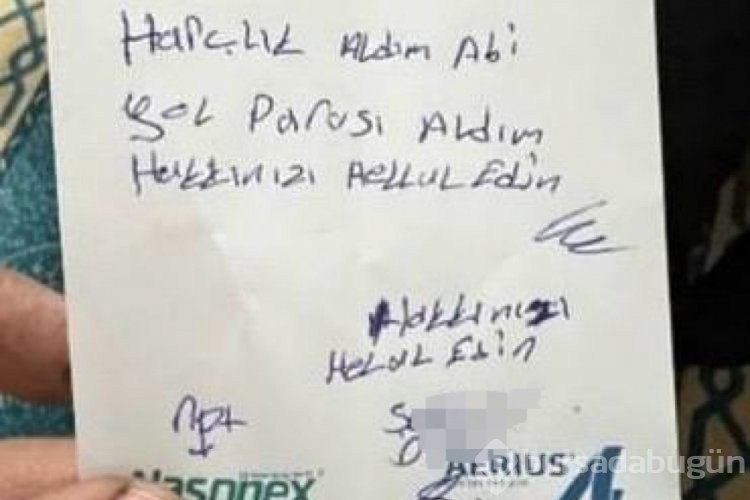 Harçlık Aldım Abi
Yol Parası Aldım
Hakkınızı Hellul Edin
Hakkınızı
Helal Edin
Nasonex
AERIUS
bursadabugün